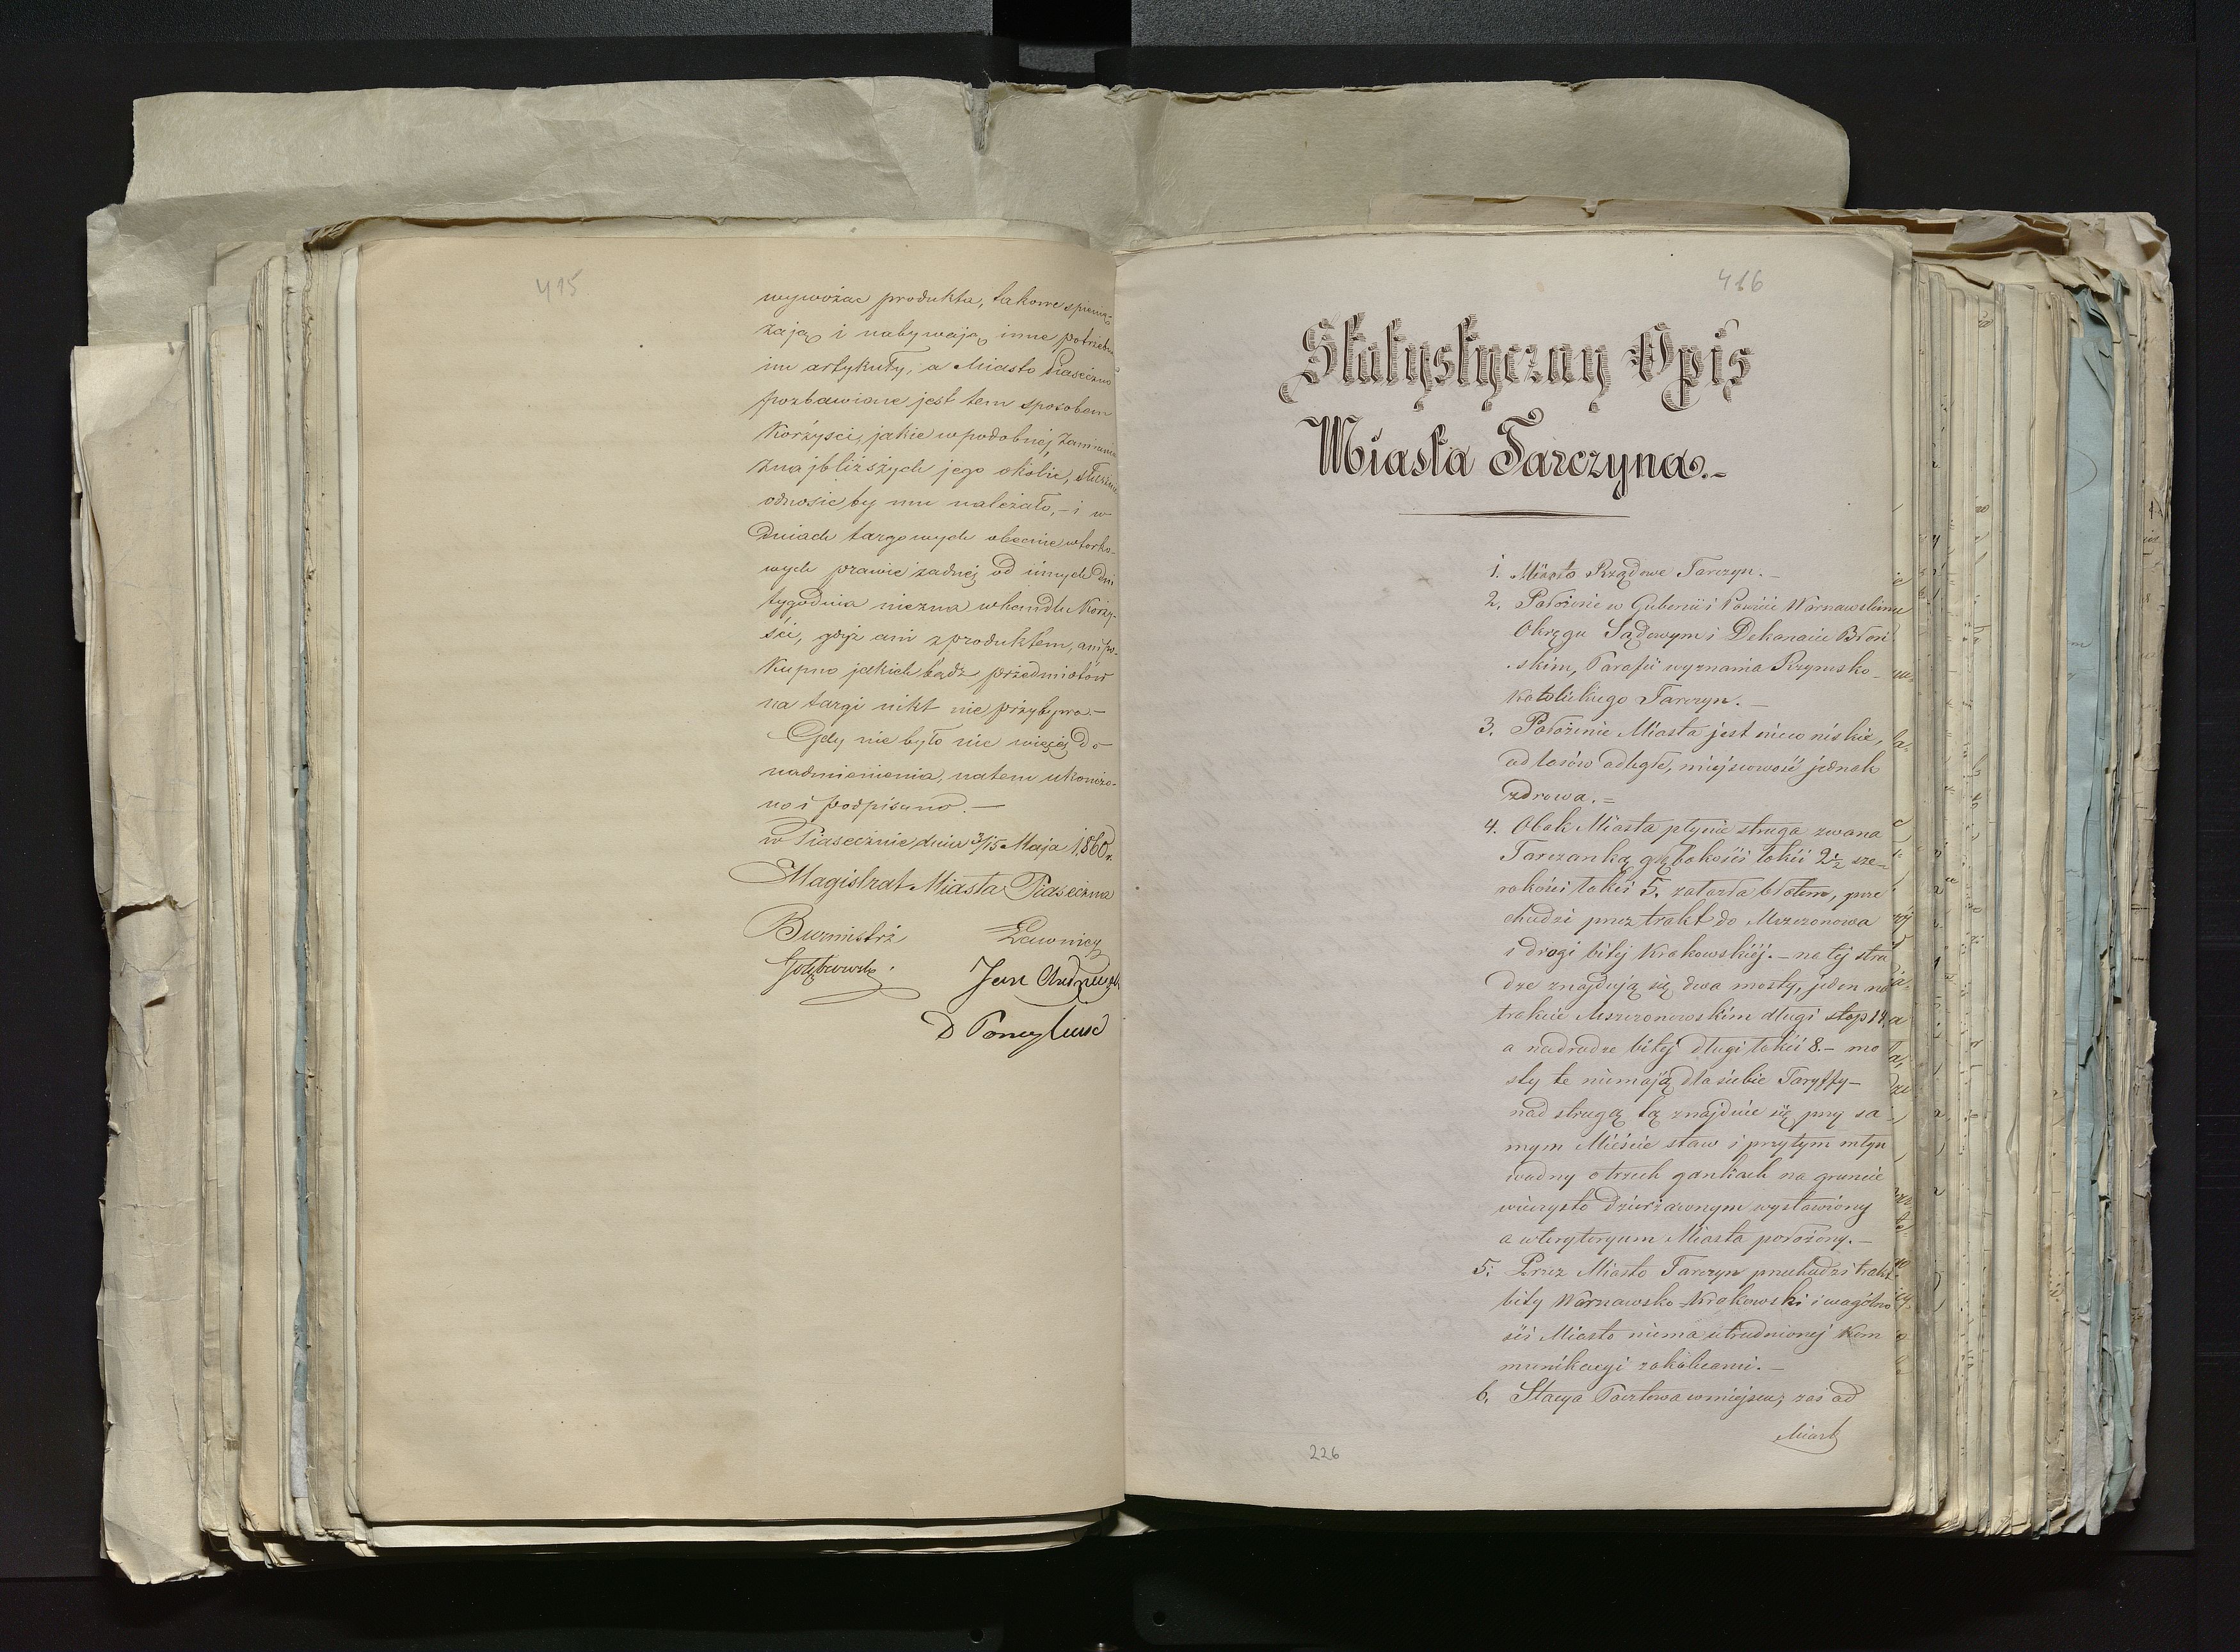 415
wywożac produkta, takowe spienię-
żają i nabywają inne potrzebne
im artykuły, a Miasto Piaseczno
pozbawione jest tem sposobem
Korzyści, jakie w podobnéj zamianie
z najbliższych jego okolic, słusznie
odnosić by mu należało, - i w
Dniach targowych obecnie wtorko-
wych prawie żadnéj od innych dni
tygodnia niezna w handlu Korzy-
ści, gdyż ani z produktem, ani po-
Kupno jakich bądź przedmiotów
na targi nikt nie przybywa. -
Gdy nie było nic więcéj do
nadmienienia, na tem ukończo-
no i podpisano. -
w Piasecznie dnia 3/15 Maja 1860 r.
Magistrat Miasta Piaseczna
Burmistrz Ławnicy
Jan
D
416
Statystyczny Opis
Miasta Tarczyna. -
1. Miasto Rządowe Tarczyn. -
2. Położenie w Gubernii i Powiecie Warszawskim
Okręgu Sądowym i Dekanacie Błoń
skim, Parafii wyznania Rzymsko-
katolickiego Tarczyn. -
3. Położenie Miasta jest nieco niskie,
od lasów odległe, miejscowość jednak
zdrowa. =
4. Obok Miasta płynie struga zwana
Tarczanką głębokości łokci 2 1/2 sze-
rokości łokci 5. zatarta błotem, prze
chodzi przez trakt do Mszczonowa
i drogi bitéj Krakowskiéj. - na tej stru
dze znajdują się dwa mosty, jeden na
trakcie Mszczonowskim długi stop 14,
a na drodze bitéj długi łokci 8. - mo
sty te niemają dla siebie Taryffy -
nad strugą tą znajduie się przy sa
mym Mieście staw i przytym młyn
wodny o trzech gankach na gruncie
wieczysto dzierżawnym wystawiony
a w terytoryum Miasta położony. -
5. Przez Miasto Tarczyn przechodzi trakt
bity Warszawsko-Krakowski i w ogólno
ści Miasto niema utrudnionej Kom
munikacyi z okolicami. -
6. Stacya Pocztowa w miejscu, zaś od
Miast
226